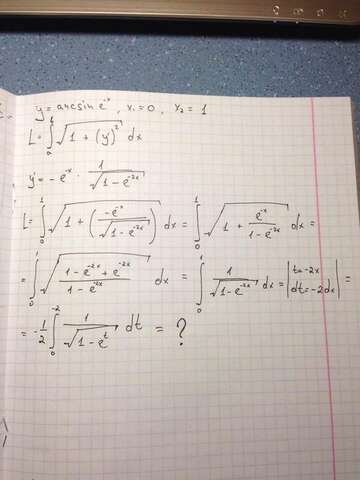 y = arcsin e^{-x}, x₁ = 0, x₂ = 1
L = ∫₀¹ √(1 + (y')²) dx
y' = -e^{-x} · 1/√(1 - e^{-2x})
L = ∫₀¹ √(1 + (-e^{-x}/√(1 - e^{-2x}))) dx = ∫₀¹ √(1 + e^{-x}/(1 - e^{-2x})) dx =
= ∫₀¹ √((1 - e^{-2x} + e^{-2x})/(1 - e^{-2x})) dx = ∫₀¹ 1/√(1 - e^{-2x}) dx = |t = -2x dt = -2dx| =
= -1/2 ∫₀^{-2} 1/√(1 - e^t) dt = ?